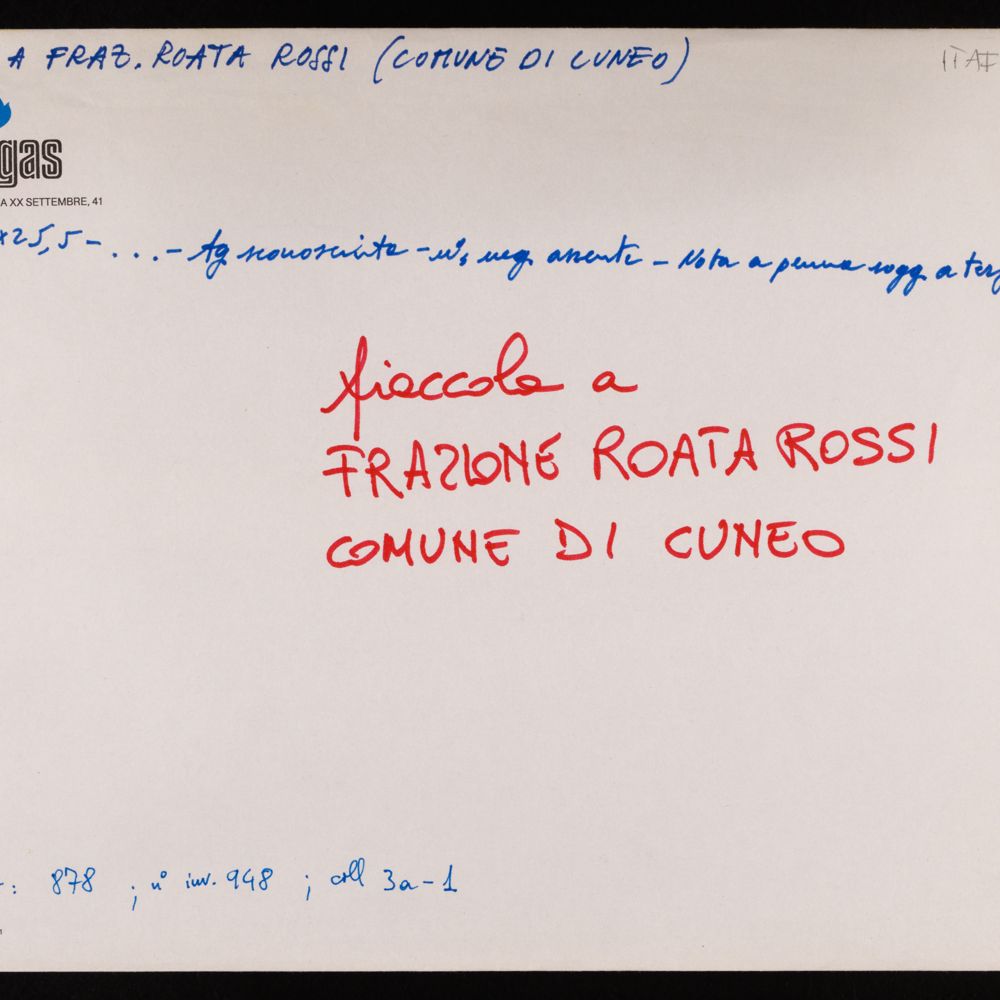 A FRAZ. ROATA ROSSI (COMUNE DI CUNEO)
ITAF
gas
A XX SETTEMBRE, 41
x25,5 - ... - Ag sconosciuta - n°, neg. assente - Nota a penna sogg. a terg
fiaccola a
FRAZIONE ROATA ROSSI
COMUNE DI CUNEO
: 878 ; n° inv. 948 ; coll 3a-1